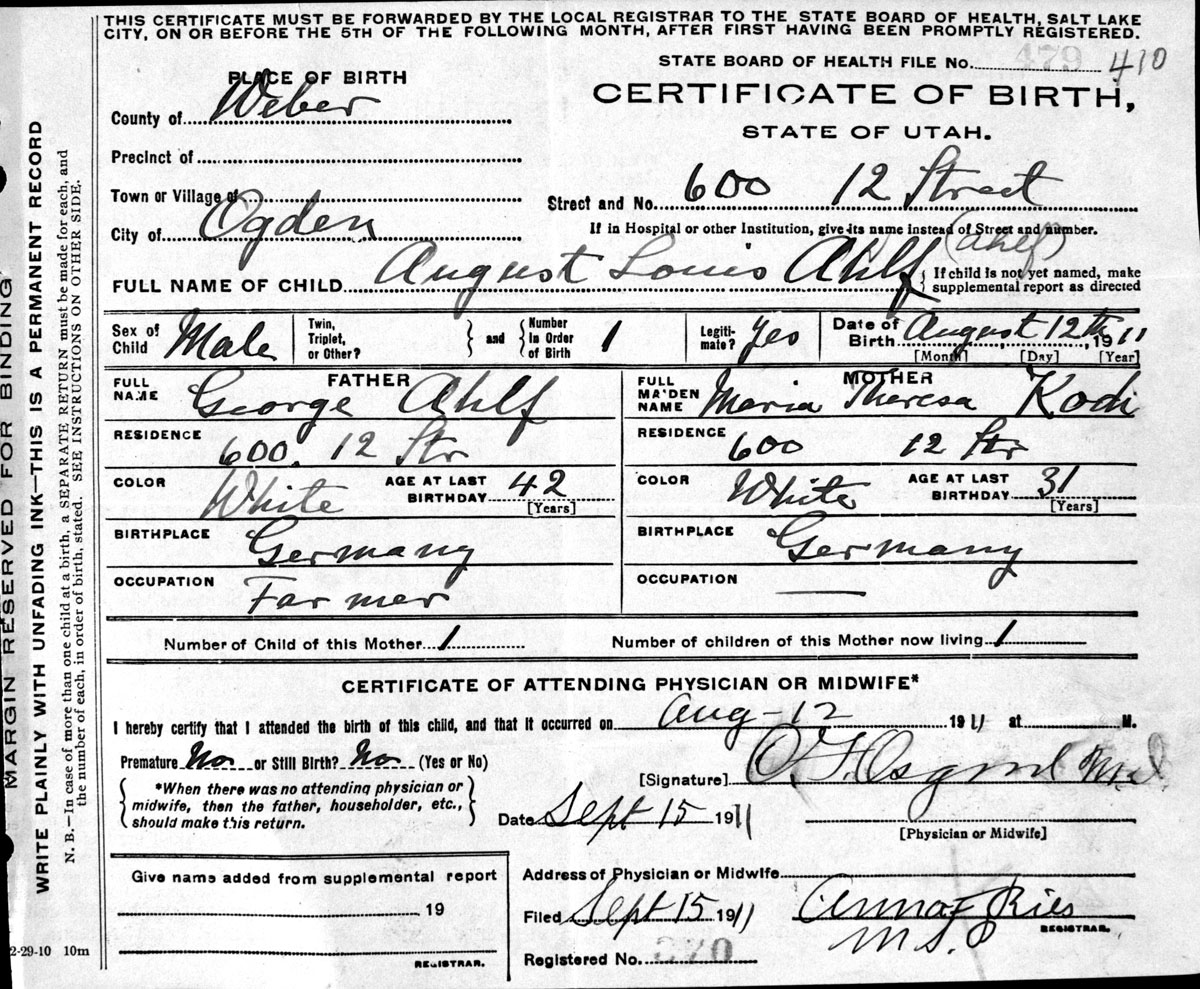 THIS CERTIFICATE MUST BE FORWARDED BY THE LOCAL REGISTRAR TO THE STATE BOARD OF HEALTH, SALT LAKE
CITY, ON OR BEFORE THE 5TH OF THE FOLLOWING MONTH, AFTER FIRST HAVING BEEN PROMPTLY REGISTERED.
STATE BOARD OF HEALTH FILE No. 479 410
PLACE OF BIRTH
CERTIFICATE OF BIRTH,
STATE OF UTAH.
County of Weber
Precinct of
Town or Village of
Street and No. 600 12 Street
City of Ogden
If in Hospital or other Institution, give its name instead of Street and number.
(Ahlf)
FULL NAME OF CHILD August Louis Ahlf
If child is not yet named, make
supplemental report as directed
Sex of Child Male
Twin, Triplet, or Other?
and
Number in Order of Birth 1
Legiti-mate? Yes
Date of Birth August 12th, 1911
[Month] [Day] [Year]
FATHER
FULL NAME George Ahlf
RESIDENCE 600. 12 Str
COLOR White
AGE AT LAST BIRTHDAY 42
[Years]
BIRTHPLACE Germany
OCCUPATION Farmer
MOTHER
FULL MAIDEN NAME Maria Theresa Kodi
RESIDENCE 600 12 Str
COLOR White
AGE AT LAST BIRTHDAY 31
[Years]
BIRTHPLACE Germany
OCCUPATION —
Number of Child of this Mother 1
Number of children of this Mother now living 1
CERTIFICATE OF ATTENDING PHYSICIAN OR MIDWIFE*
I hereby certify that I attended the birth of this child, and that it occurred on Aug-12 1911 at M.
Premature No or Still Birth? No (Yes or No)
[Signature]
*When there was no attending physician or
midwife, then the father, householder, etc.,
should make this return.
Date Sept 15 1911
[Physician or Midwife]
Give name added from supplemental report
19
REGISTRAR.
Address of Physician or Midwife
Filed Sept 15 1911 Anna F Ries
M S.
REGISTRAR.
Registered No. 370
2-29-10 10m
MARGIN RESERVED FOR BINDING
WRITE PLAINLY WITH UNFADING INK—THIS IS A PERMANENT RECORD
N. B.—In case of more than one child at a birth, a SEPARATE RETURN must be made for each, and
the number of each, in order of birth, stated. SEE INSTRUCTIONS ON OTHER SIDE.